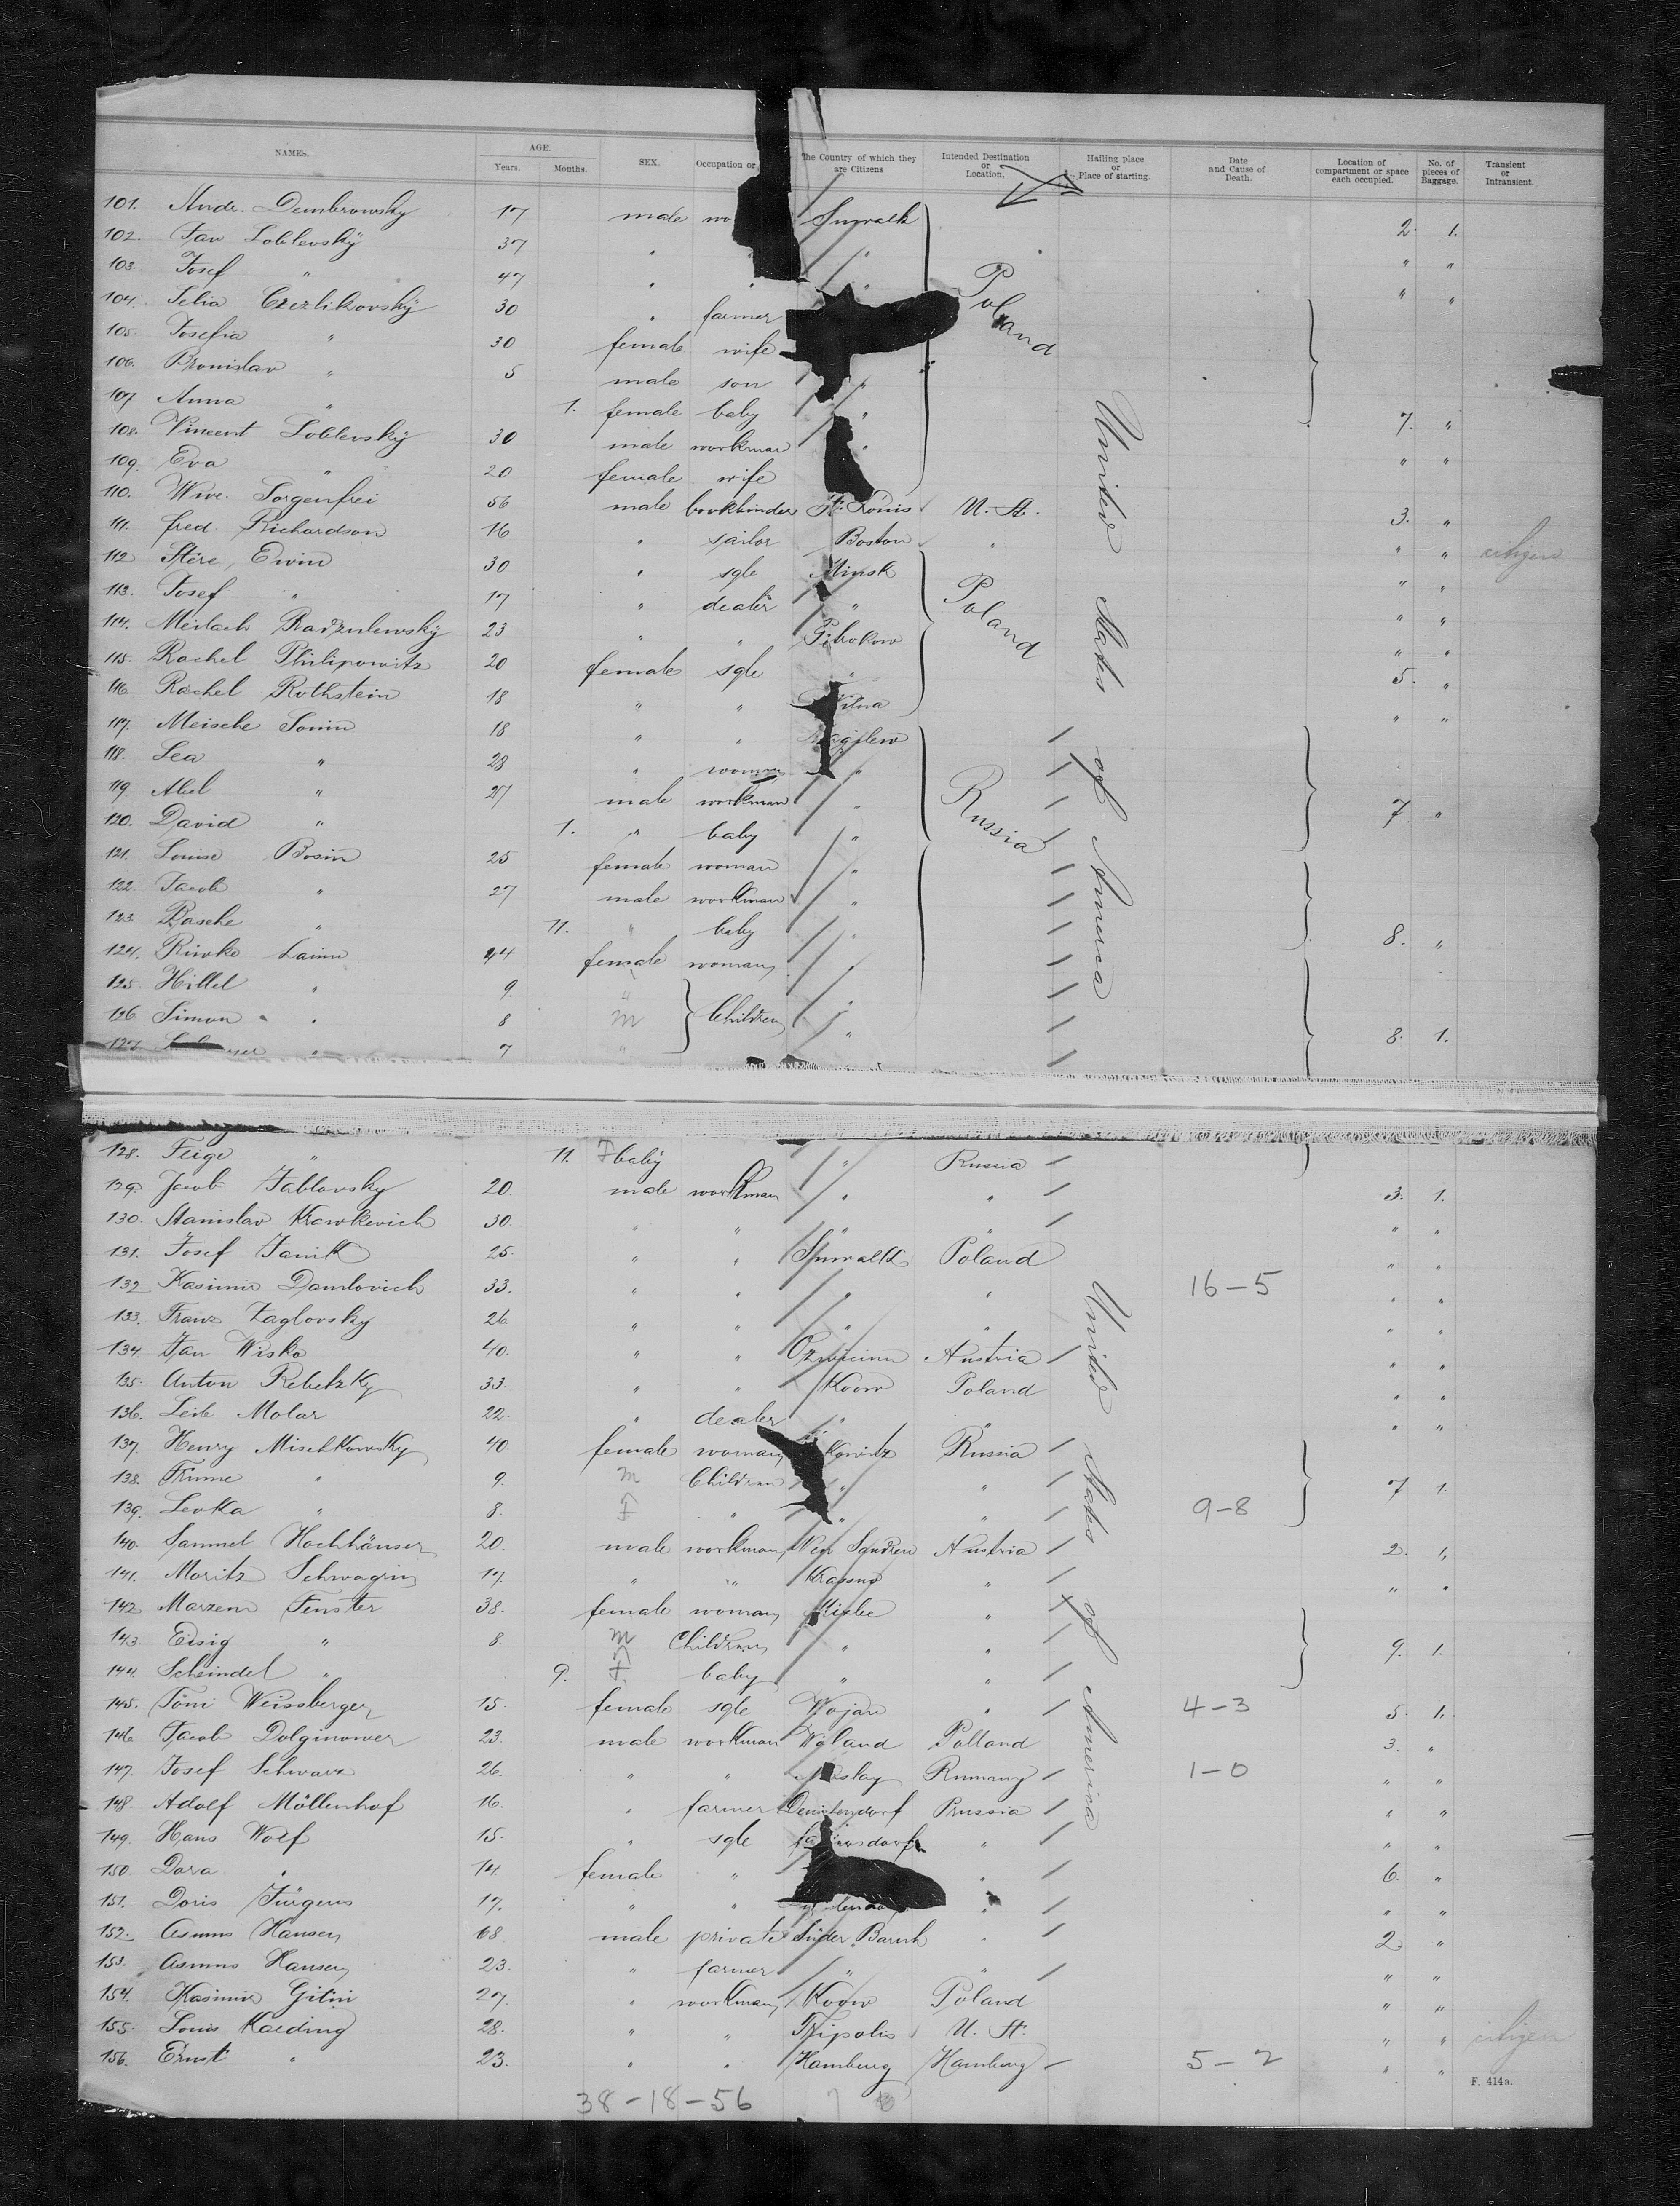 NAMES. AGE. Years. Months. SEX. Occupation or The Country of which they are Citizens Intended Destination or Location. Hailing place or Place of starting. Date and Cause of Death. Location of compartment or space each occupied. No. of pieces of Baggage. Transient or Intransient.
101. Andr. Dembrowsky 17 male wo Suwalk 2. 1.
102. Jan Loblevsky 37 " " " "
103. Josef " 47 " " " "
104. Selia Czezlikovsky 30 " farmer Poland
105. Josefia " 30 female wife
106. Bronislav " 5 male son "
107. Anna " 1. female baby " 7. "
108. Vincent Loblevsky 30 male workman " " "
109. Eva " 20 female wife
110. Wwe. Sorgenfrei 56 male bookbinder St. Louis U. St. 3. "
111. Fred. Richardson 16 " sailor Boston " " " citizen
112. Stere, Ewin 30 " sgle Minsk " "
113. Josef " 17 " dealer " Poland " "
114. Meilach Radzulewsky 23 " " " "
115. Rachel Philipowitz 20 female sgle " 5. "
116. Rachel Rothstein 18 " " Wilna " "
117. Meische Sonin 18 " "
118. Lea " 28 " woman "
119. Abel " 27 male workman " Russia 7 "
120. David " 1. " baby "
121. Louise Bosin 25 female woman "
122. Jacob " 27 male workman "
123. Basche " 11. " baby " 8. "
124. Riwke Lainn 24 female woman
125. Hillel " 9. "
126. Simon " 8 m Children " 8. 1.
127. " 7 "
United States of America
128. Feige " 11. F baby " Russia
129. Jacob Jablovsky 20. male workman " " 3. 1.
130. Stanislav Krawkevich 30. " " " " " "
131. Josef Janik 25. " " Suwalk Poland " "
132. Kasimir Damlovich 33. " " " " 16-5 " "
133. Franz Zaglovsky 26 " " " " " "
134. Jan Wisko 40. " " Austria " "
135. Anton Rebetzky 33. " " Koow Poland " "
136. Leib Molar 22. " dealer " " "
137. Henry Mischkowsky 40. female woman Russia
138. " 9. m Children " " 7 1.
139. Levka " 8. F " " " 9-8
140. Sammel Hochhäuser 20. male workman Neu Sandren Austria 2. 1.
141. Moritz Schwagrin 17. " " Krasno " " "
142. Marzem Fenster 38. female woman "
143. Eisig " 8. m Children " " 9. 1.
144. Scheindel " 9. F baby " "
145. Töni Weissberger 15. female sgle Wojare " 4-3 5. 1.
146. Jacob Dolginower 23. male workman Woland Polland 3. "
147. Josef Schwarz 26. " " Rumany 1-0 " "
148. Adolf Möllenhof 16. " farmer Prussia " "
149. Hans Wolf 15. " sgle " " "
150. Dora " 14. female " " 6. "
151. Doris Jürgens 17. " " " " "
152. Asmus Hansen 68 male private Süder Barnk " 2 "
153. Asmus Hansen 23. " farmer " " " "
154. Kasimir Gitin 27. " workman Koow Poland " "
155. Louis Kaeding 28. " " Tripolis U. St. " " citizen
156. Ernst " 23. " " Hamburg Hamburg 5-2 " "
United States of America
F. 414a.
38-18-56